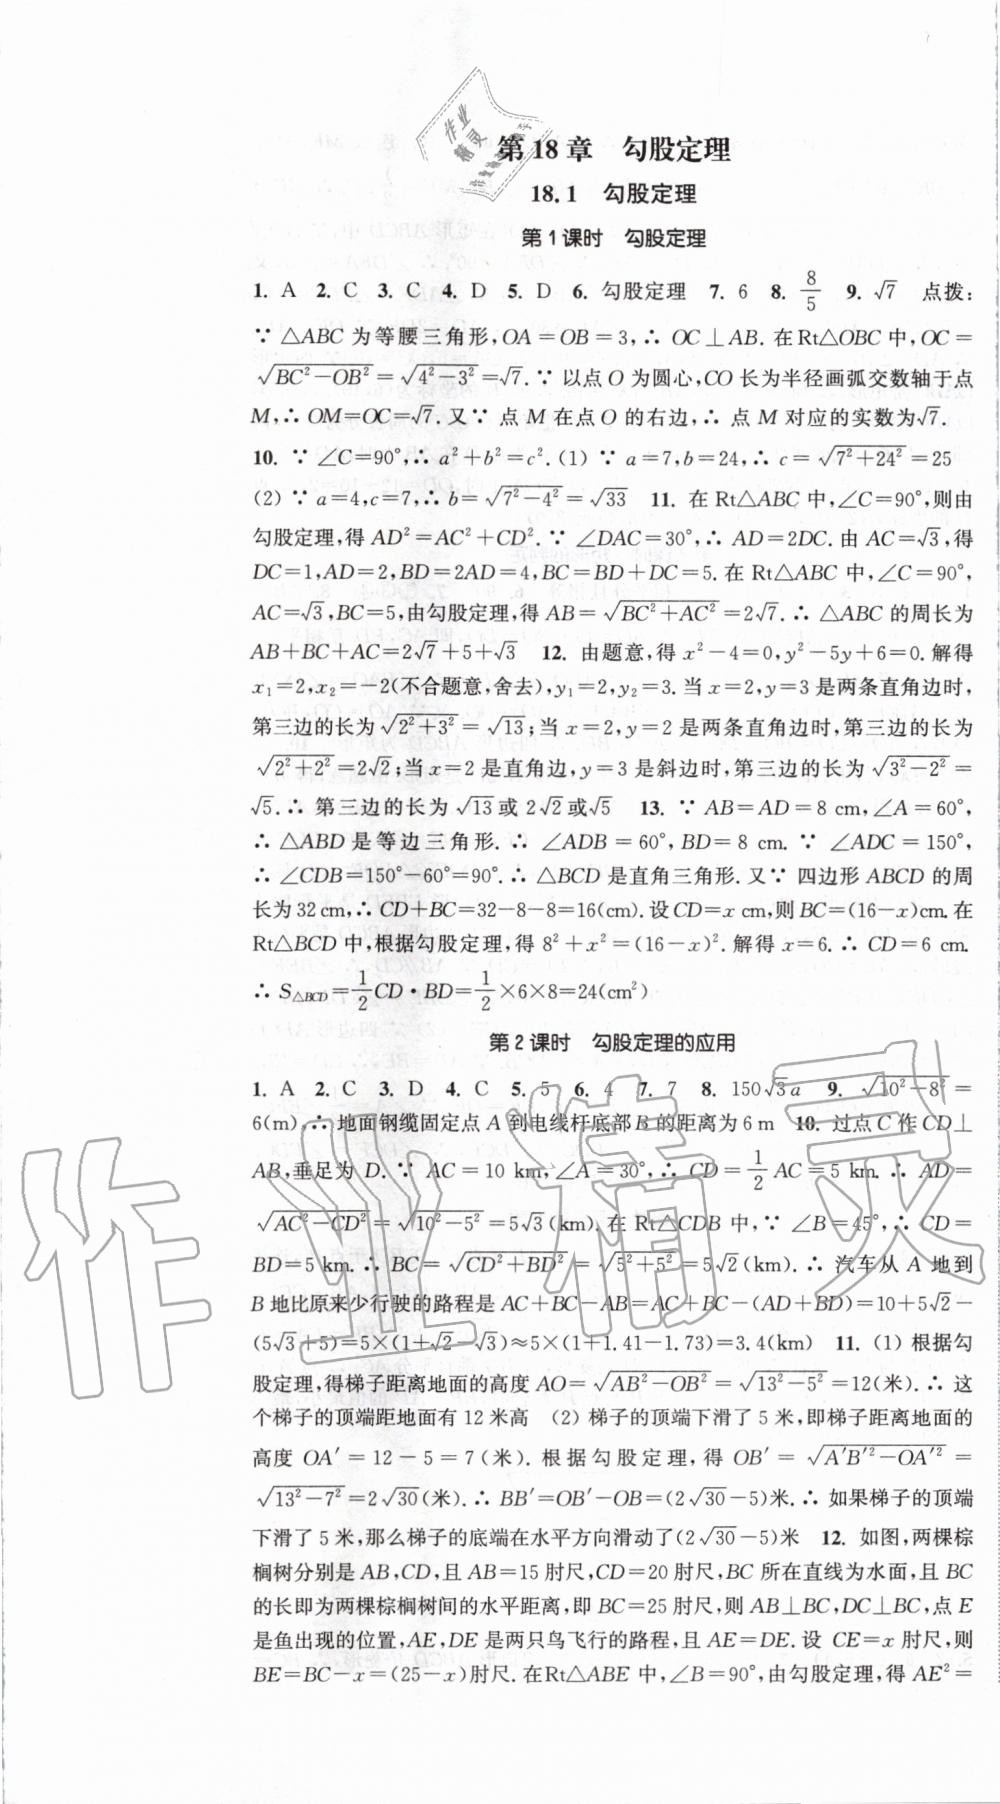 作业
精灵
第 18 章 勾股定理
18.1 勾股定理
第 1 课时 勾股定理
1. A 2. C 3. C 4. D 5. D 6. 勾股定理 7. 6 8. 8/5 9. √7 点拨:
∵ △ABC 为等腰三角形,OA=OB=3,∴ OC⊥AB. 在 Rt△OBC 中,OC=
√(BC²-OB²)=√(4²-3²)=√7. ∵ 以点 O 为圆心,CO 长为半径画弧交数轴于点
M,∴ OM=OC=√7. 又∵ 点 M 在点 O 的右边,∴ 点 M 对应的实数为√7.
10. ∵ ∠C=90°,∴ a²+b²=c². (1) ∵ a=7,b=24,∴ c=√(7²+24²)=25
(2) ∵ a=4,c=7,∴ b=√(7²-4²)=√33 11. 在 Rt△ABC 中,∠C=90°,则由
勾股定理,得 AD²=AC²+CD². ∵ ∠DAC=30°,∴ AD=2DC. 由 AC=√3,得
DC=1,AD=2,BD=2AD=4,BC=BD+DC=5. 在 Rt△ABC 中,∠C=90°,
AC=√3,BC=5,由勾股定理,得 AB=√(BC²+AC²)=2√7. ∴ △ABC 的周长为
AB+BC+AC=2√7+5+√3 12. 由题意,得 x²-4=0,y²-5y+6=0. 解得
x₁=2,x₂=-2(不合题意,舍去),y₁=2,y₂=3. 当 x=2,y=3 是两条直角边时,
第三边的长为√(2²+3²)=√13;当 x=2,y=2 是两条直角边时,第三边的长为
√(2²+2²)=2√2;当 x=2 是直角边,y=3 是斜边时,第三边的长为√(3²-2²)=
√5. ∴ 第三边的长为√13或 2√2或√5 13. ∵ AB=AD=8 cm,∠A=60°,
∴ △ABD 是等边三角形. ∴ ∠ADB=60°,BD=8 cm. ∵ ∠ADC=150°,
∴ ∠CDB=150°-60°=90°. ∴ △BCD 是直角三角形. 又∵ 四边形 ABCD 的周
长为 32 cm,∴ CD+BC=32-8-8=16(cm). 设 CD=x cm,则 BC=(16-x)cm. 在
Rt△BCD 中,根据勾股定理,得 8²+x²=(16-x)². 解得 x=6. ∴ CD=6 cm.
∴ S△BCD=1/2 CD·BD=1/2×6×8=24(cm²)
第 2 课时 勾股定理的应用
1. A 2. C 3. D 4. C 5. 5 6. 4 7. 7 8. 150√3a 9. √(10²-8²)=
6(m),∴ 地面钢缆固定点 A 到电线杆底部 B 的距离为 6 m 10. 过点 C 作 CD⊥
AB,垂足为 D. ∵ AC=10 km,∠A=30°,∴ CD=1/2 AC=5 km. ∴ AD=
√(AC²-CD²)=√(10²-5²)=5√3(km). 在 Rt△CDB 中,∵ ∠B=45°,∴ CD=
BD=5 km. ∴ BC=√(CD²+BD²)=√(5²+5²)=5√2(km). ∴ 汽车从 A 地到
B 地比原来少行驶的路程是 AC+BC-AB=AC+BC-(AD+BD)=10+5√2-
(5√3+5)=5×(1+√2-√3)≈5×(1+1.41-1.73)=3.4(km) 11. (1) 根据勾
股定理,得梯子距离地面的高度 AO=√(AB²-OB²)=√(13²-5²)=12(米). ∴ 这
个梯子的顶端距地面有 12 米高 (2) 梯子的顶端下滑了 5 米,即梯子距离地面的
高度 OA′=12-5=7(米). 根据勾股定理,得 OB′=√(A′B′²-OA′²)=
√(13²-7²)=2√30(米). ∴ BB′=OB′-OB=(2√30-5)米. ∴ 如果梯子的顶端
下滑了 5 米,那么梯子的底端在水平方向滑动了(2√30-5)米 12. 如图,两棵棕
榈树分别是 AB,CD,且 AB=15 肘尺,CD=20 肘尺,BC 所在直线为水面,且 BC
的长即为两棵棕榈树间的水平距离,即 BC=25 肘尺,则 AB⊥BC,DC⊥BC,点 E
是鱼出现的位置,AE,DE 是两只鸟飞行的路程,且 AE=DE. 设 CE=x 肘尺,则
BE=BC-x=(25-x)肘尺. 在 Rt△ABE 中,∠B=90°,由勾股定理,得 AE²=
作业精灵